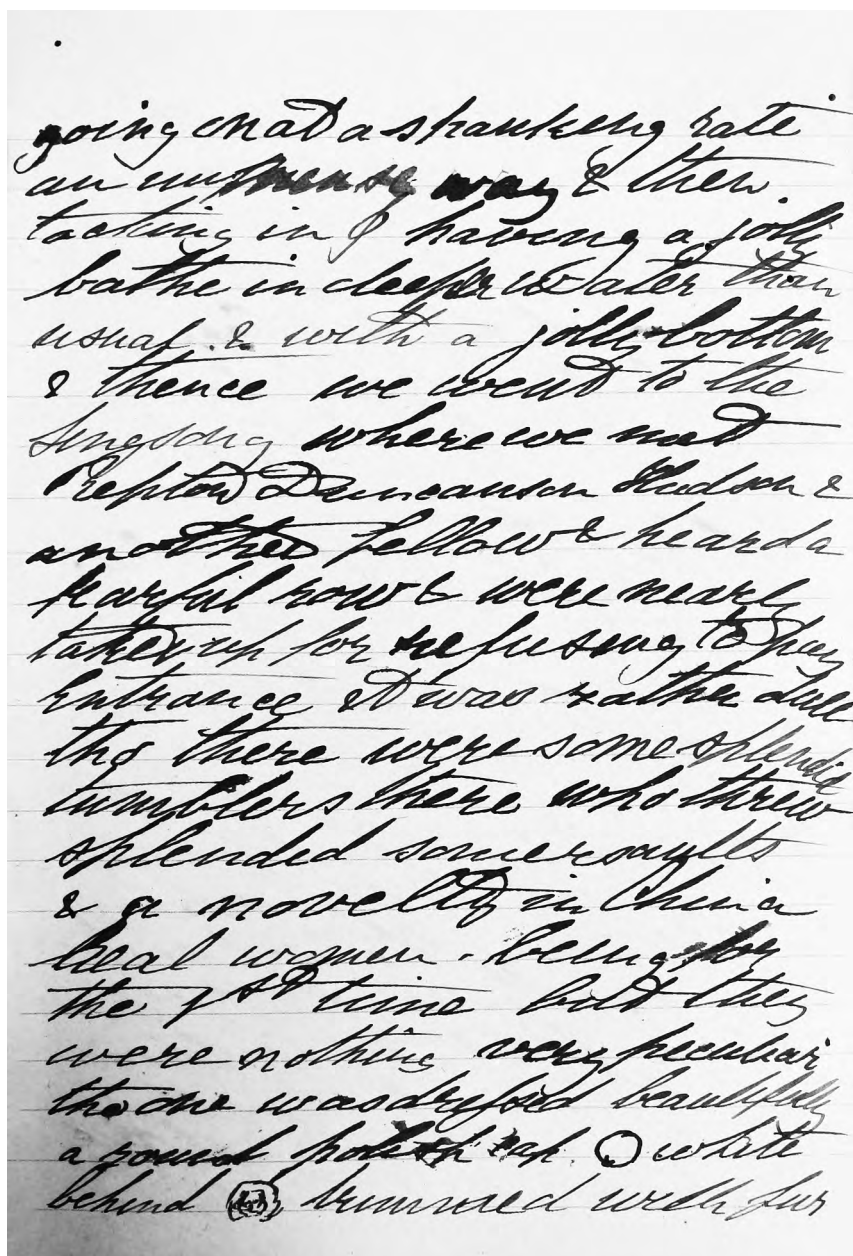 going on at a spanking rate
an immense way & then
tacking in & having a jolly
bathe in deeper water than
usual & with a jolly bottom
& thence we went to the
Singsong where we met
Repton Duncanson Hudson &
another fellow & heard a
fearful row & were nearly
taken up for refusing to pay
Entrance it was rather dull
tho there were some splendid
tumblers there who threw
splended somersaults
& a novelty in China
Real women. being for
the 1st time but they
were nothing very peculiar
tho one was dressed beautifully
a round polish cap white
behind trimmed with fur